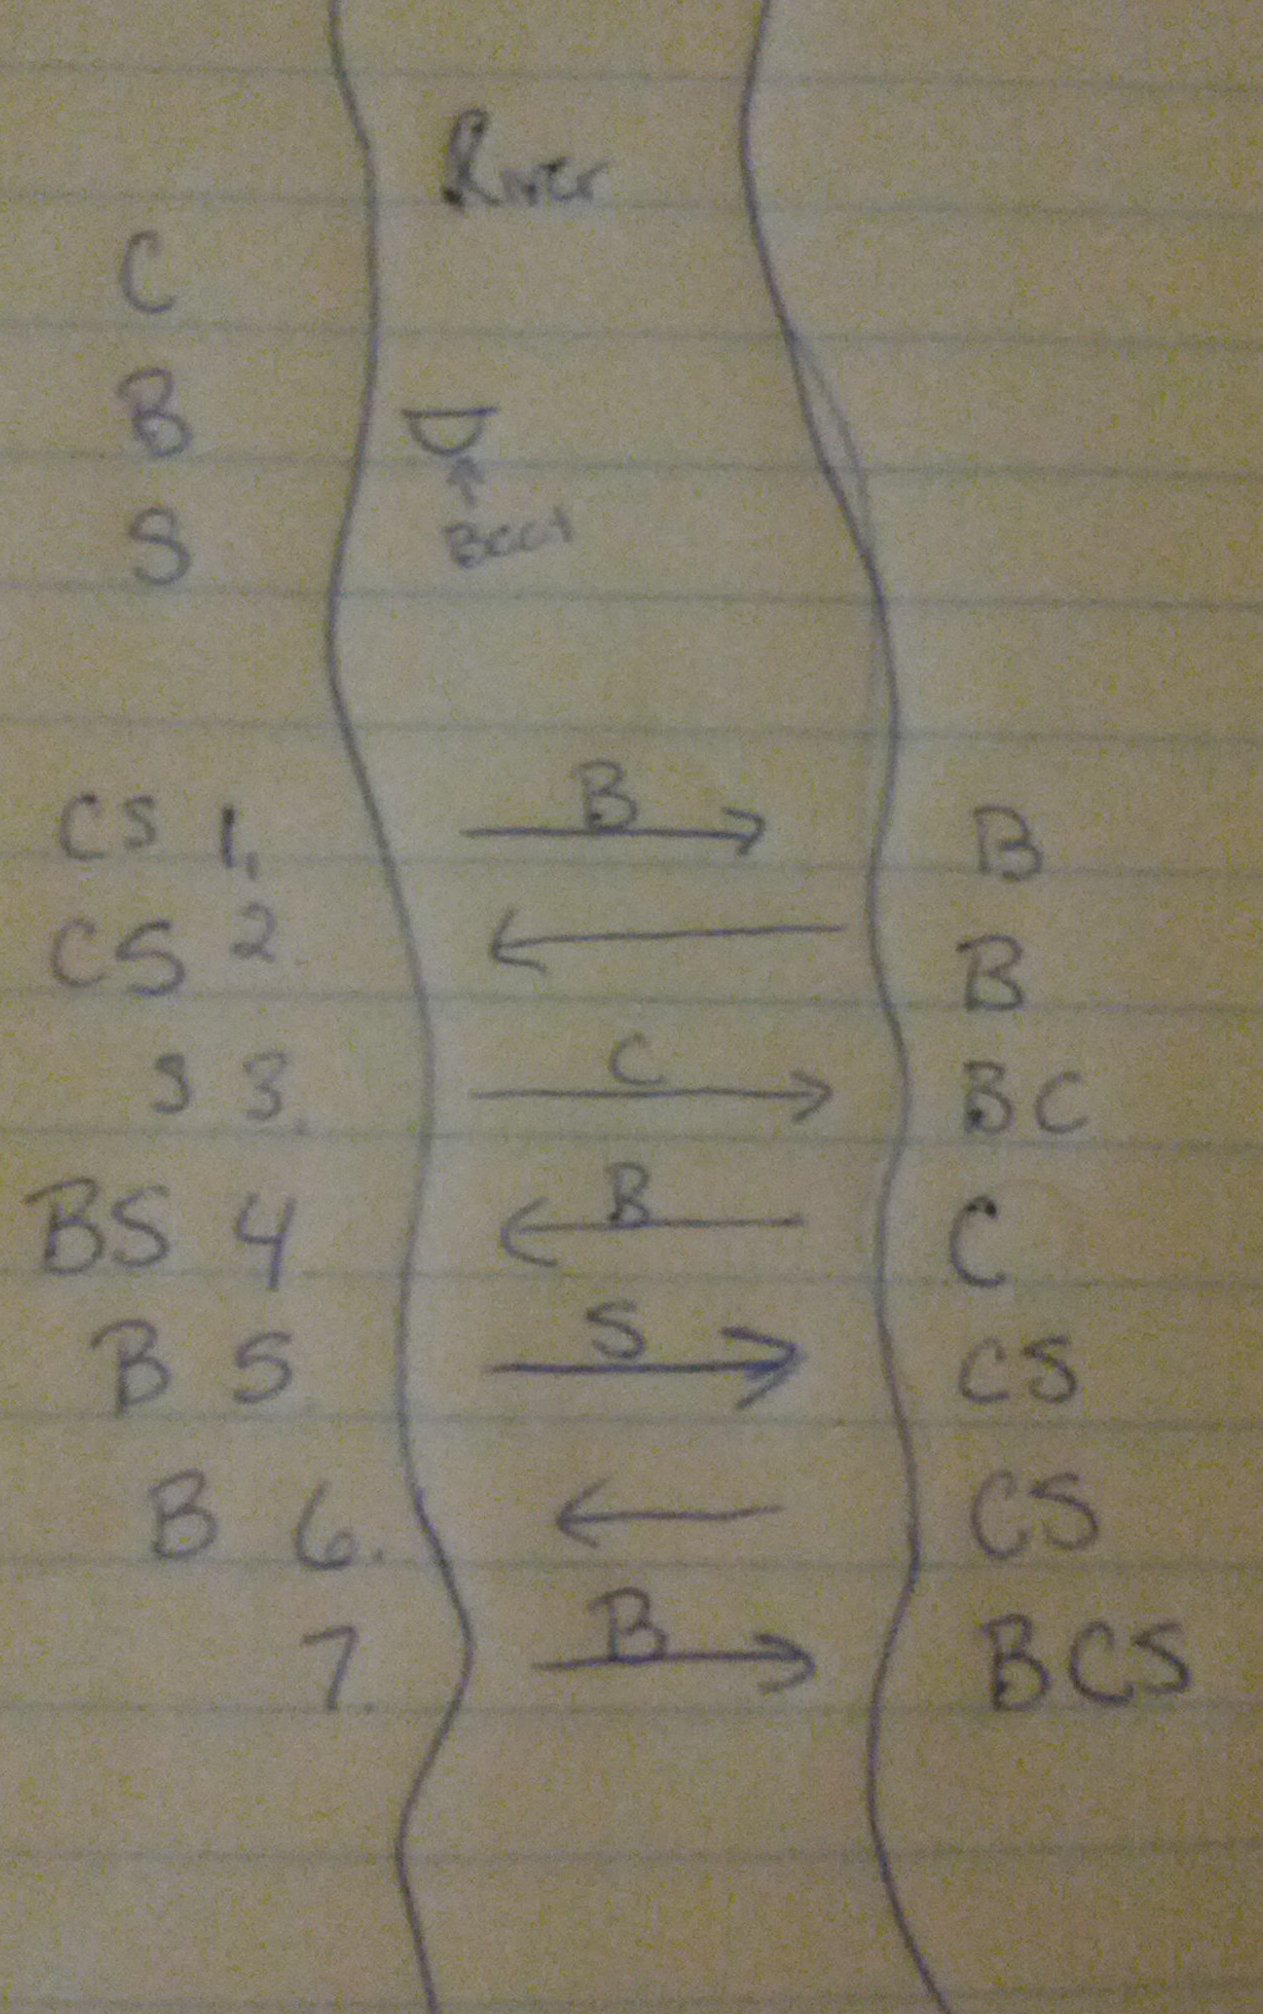 River
C
B
S
Boat
CS 1. B B
CS 2. B
S 3. C BC
BS 4 B C
B 5. S CS
B 6. CS
7. B BCS